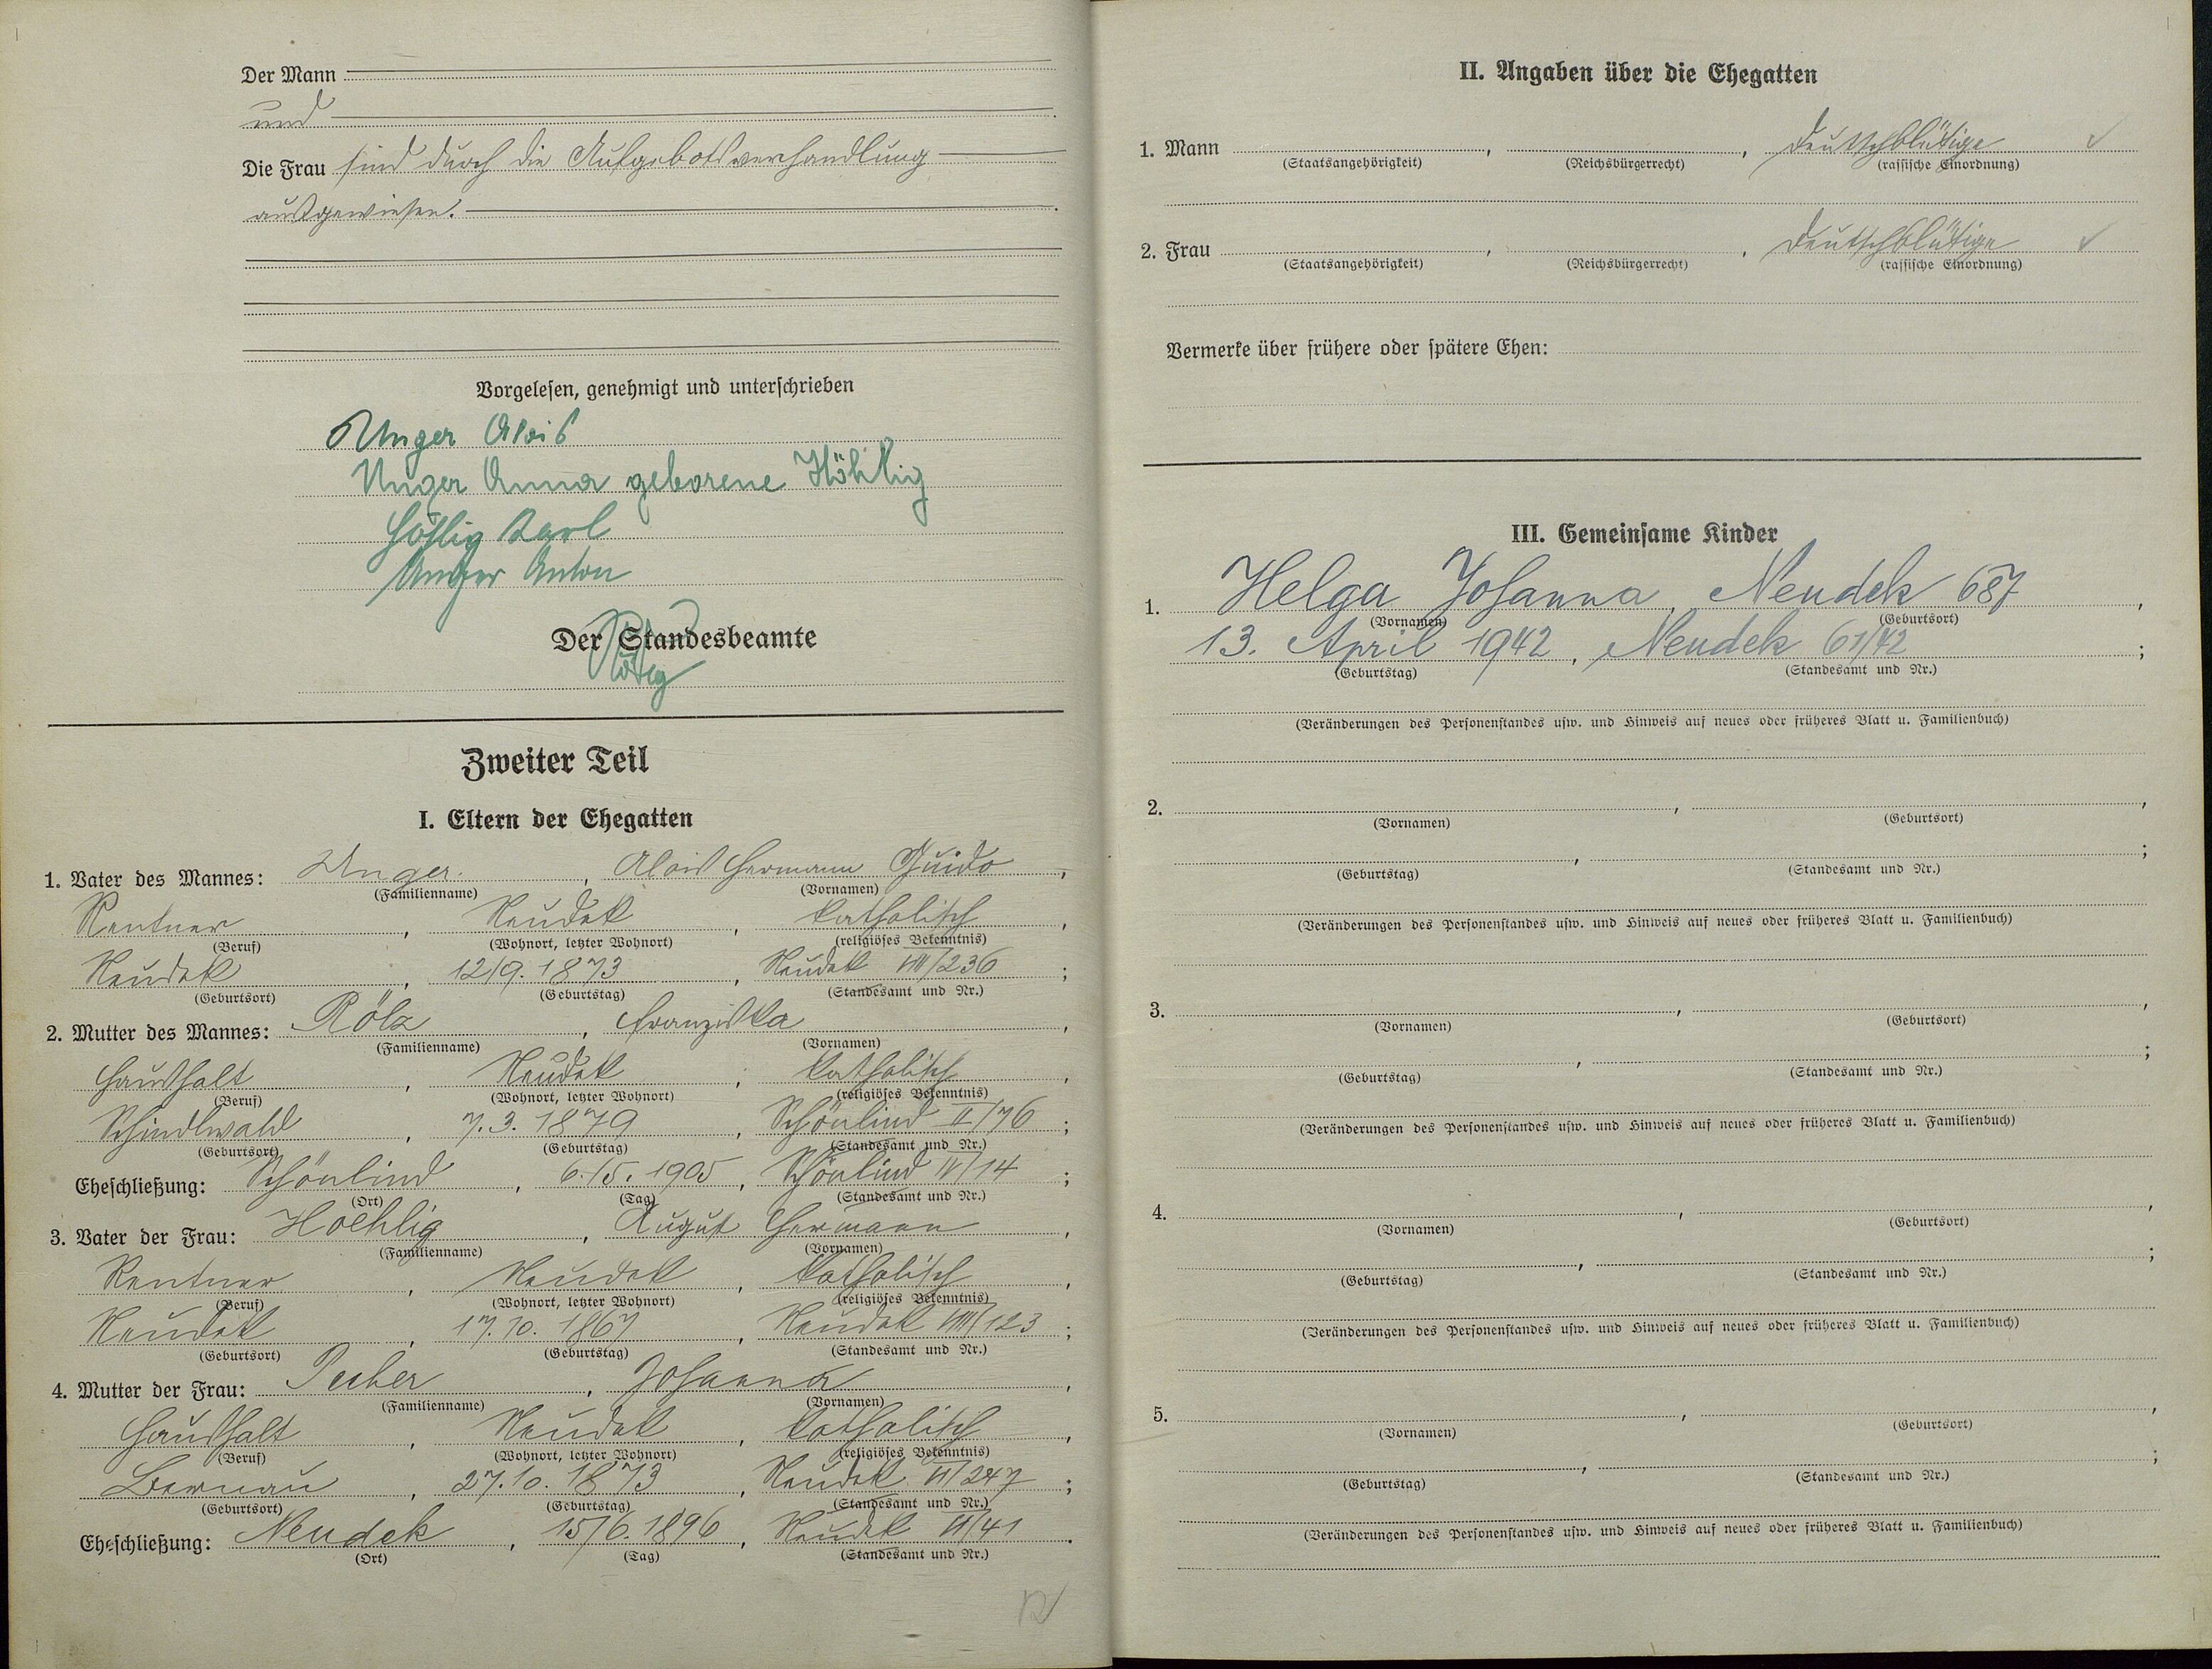 Der Mann
und
Die Frau sind durch die Aufgebotsverhandlung
ausgewiesen.
Vorgelesen, genehmigt und unterschrieben
Unger Alois
Unger Anna geborene Höhlig
Höhlig Karl
Unger Anton
Der Standesbeamte
Zweiter Teil
I. Eltern der Ehegatten
1. Vater des Mannes: Unger, Alois Hermann Guido,
(Familienname) (Vornamen)
Rentner, Neudek, katholisch,
(Beruf) (Wohnort, letzter Wohnort) (religiöses Bekenntnis)
Neudek, 12/9. 1873, Neudek VIII/236;
(Geburtsort) (Geburtstag) (Standesamt und Nr.)
2. Mutter des Mannes: Pölz, Franziska,
(Familienname) (Vornamen)
Haushalt, Neudek, katholisch,
(Beruf) (Wohnort, letzter Wohnort) (religiöses Bekenntnis)
Schindlwald, 7.3. 1879, Schönlind II/76;
(Geburtsort) (Geburtstag) (Standesamt und Nr.)
Eheschließung: Schönlind, 6./5. 1905, Schönlind IV/14;
(Ort) (Tag) (Standesamt und Nr.)
3. Vater der Frau: Hoehlig, August Hermann,
(Familienname) (Vornamen)
Rentner, Neudek, katholisch,
(Beruf) (Wohnort, letzter Wohnort) (religiöses Bekenntnis)
Neudek, 17.10. 1867, Neudek VIII/123;
(Geburtsort) (Geburtstag) (Standesamt und Nr.)
4. Mutter der Frau: Pecher, Johanna,
(Familienname) (Vornamen)
Haushalt, Neudek, katholisch,
(Beruf) (Wohnort, letzter Wohnort) (religiöses Bekenntnis)
Bernau, 27.10. 1873, Neudek VI/247;
(Geburtsort) (Geburtstag) (Standesamt und Nr.)
Eheschließung: Neudek, 15/6. 1896, Neudek VI/41.
(Ort) (Tag) (Standesamt und Nr.)
II. Angaben über die Ehegatten
1. Mann , , deutschblütige ✓
(Staatsangehörigkeit) (Reichsbürgerrecht) (rassische Einordnung)
2. Frau , , deutschblütige ✓
(Staatsangehörigkeit) (Reichsbürgerrecht) (rassische Einordnung)
Vermerke über frühere oder spätere Ehen:
III. Gemeinsame Kinder
1. Helga Johanna, Neudek 687,
(Vornamen) (Geburtsort)
13. April 1942, Neudek 61/42;
(Geburtstag) (Standesamt und Nr.)
(Veränderungen des Personenstandes usw. und Hinweis auf neues oder früheres Blatt u. Familienbuch)
2. , ,
(Vornamen) (Geburtsort)
, ;
(Geburtstag) (Standesamt und Nr.)
(Veränderungen des Personenstandes usw. und Hinweis auf neues oder früheres Blatt u. Familienbuch)
3. , ,
(Vornamen) (Geburtsort)
, ;
(Geburtstag) (Standesamt und Nr.)
(Veränderungen des Personenstandes usw. und Hinweis auf neues oder früheres Blatt u. Familienbuch)
4. , ,
(Vornamen) (Geburtsort)
, ;
(Geburtstag) (Standesamt und Nr.)
(Veränderungen des Personenstandes usw. und Hinweis auf neues oder früheres Blatt u. Familienbuch)
5. , ,
(Vornamen) (Geburtsort)
, ;
(Geburtstag) (Standesamt und Nr.)
(Veränderungen des Personenstandes usw. und Hinweis auf neues oder früheres Blatt u. Familienbuch)